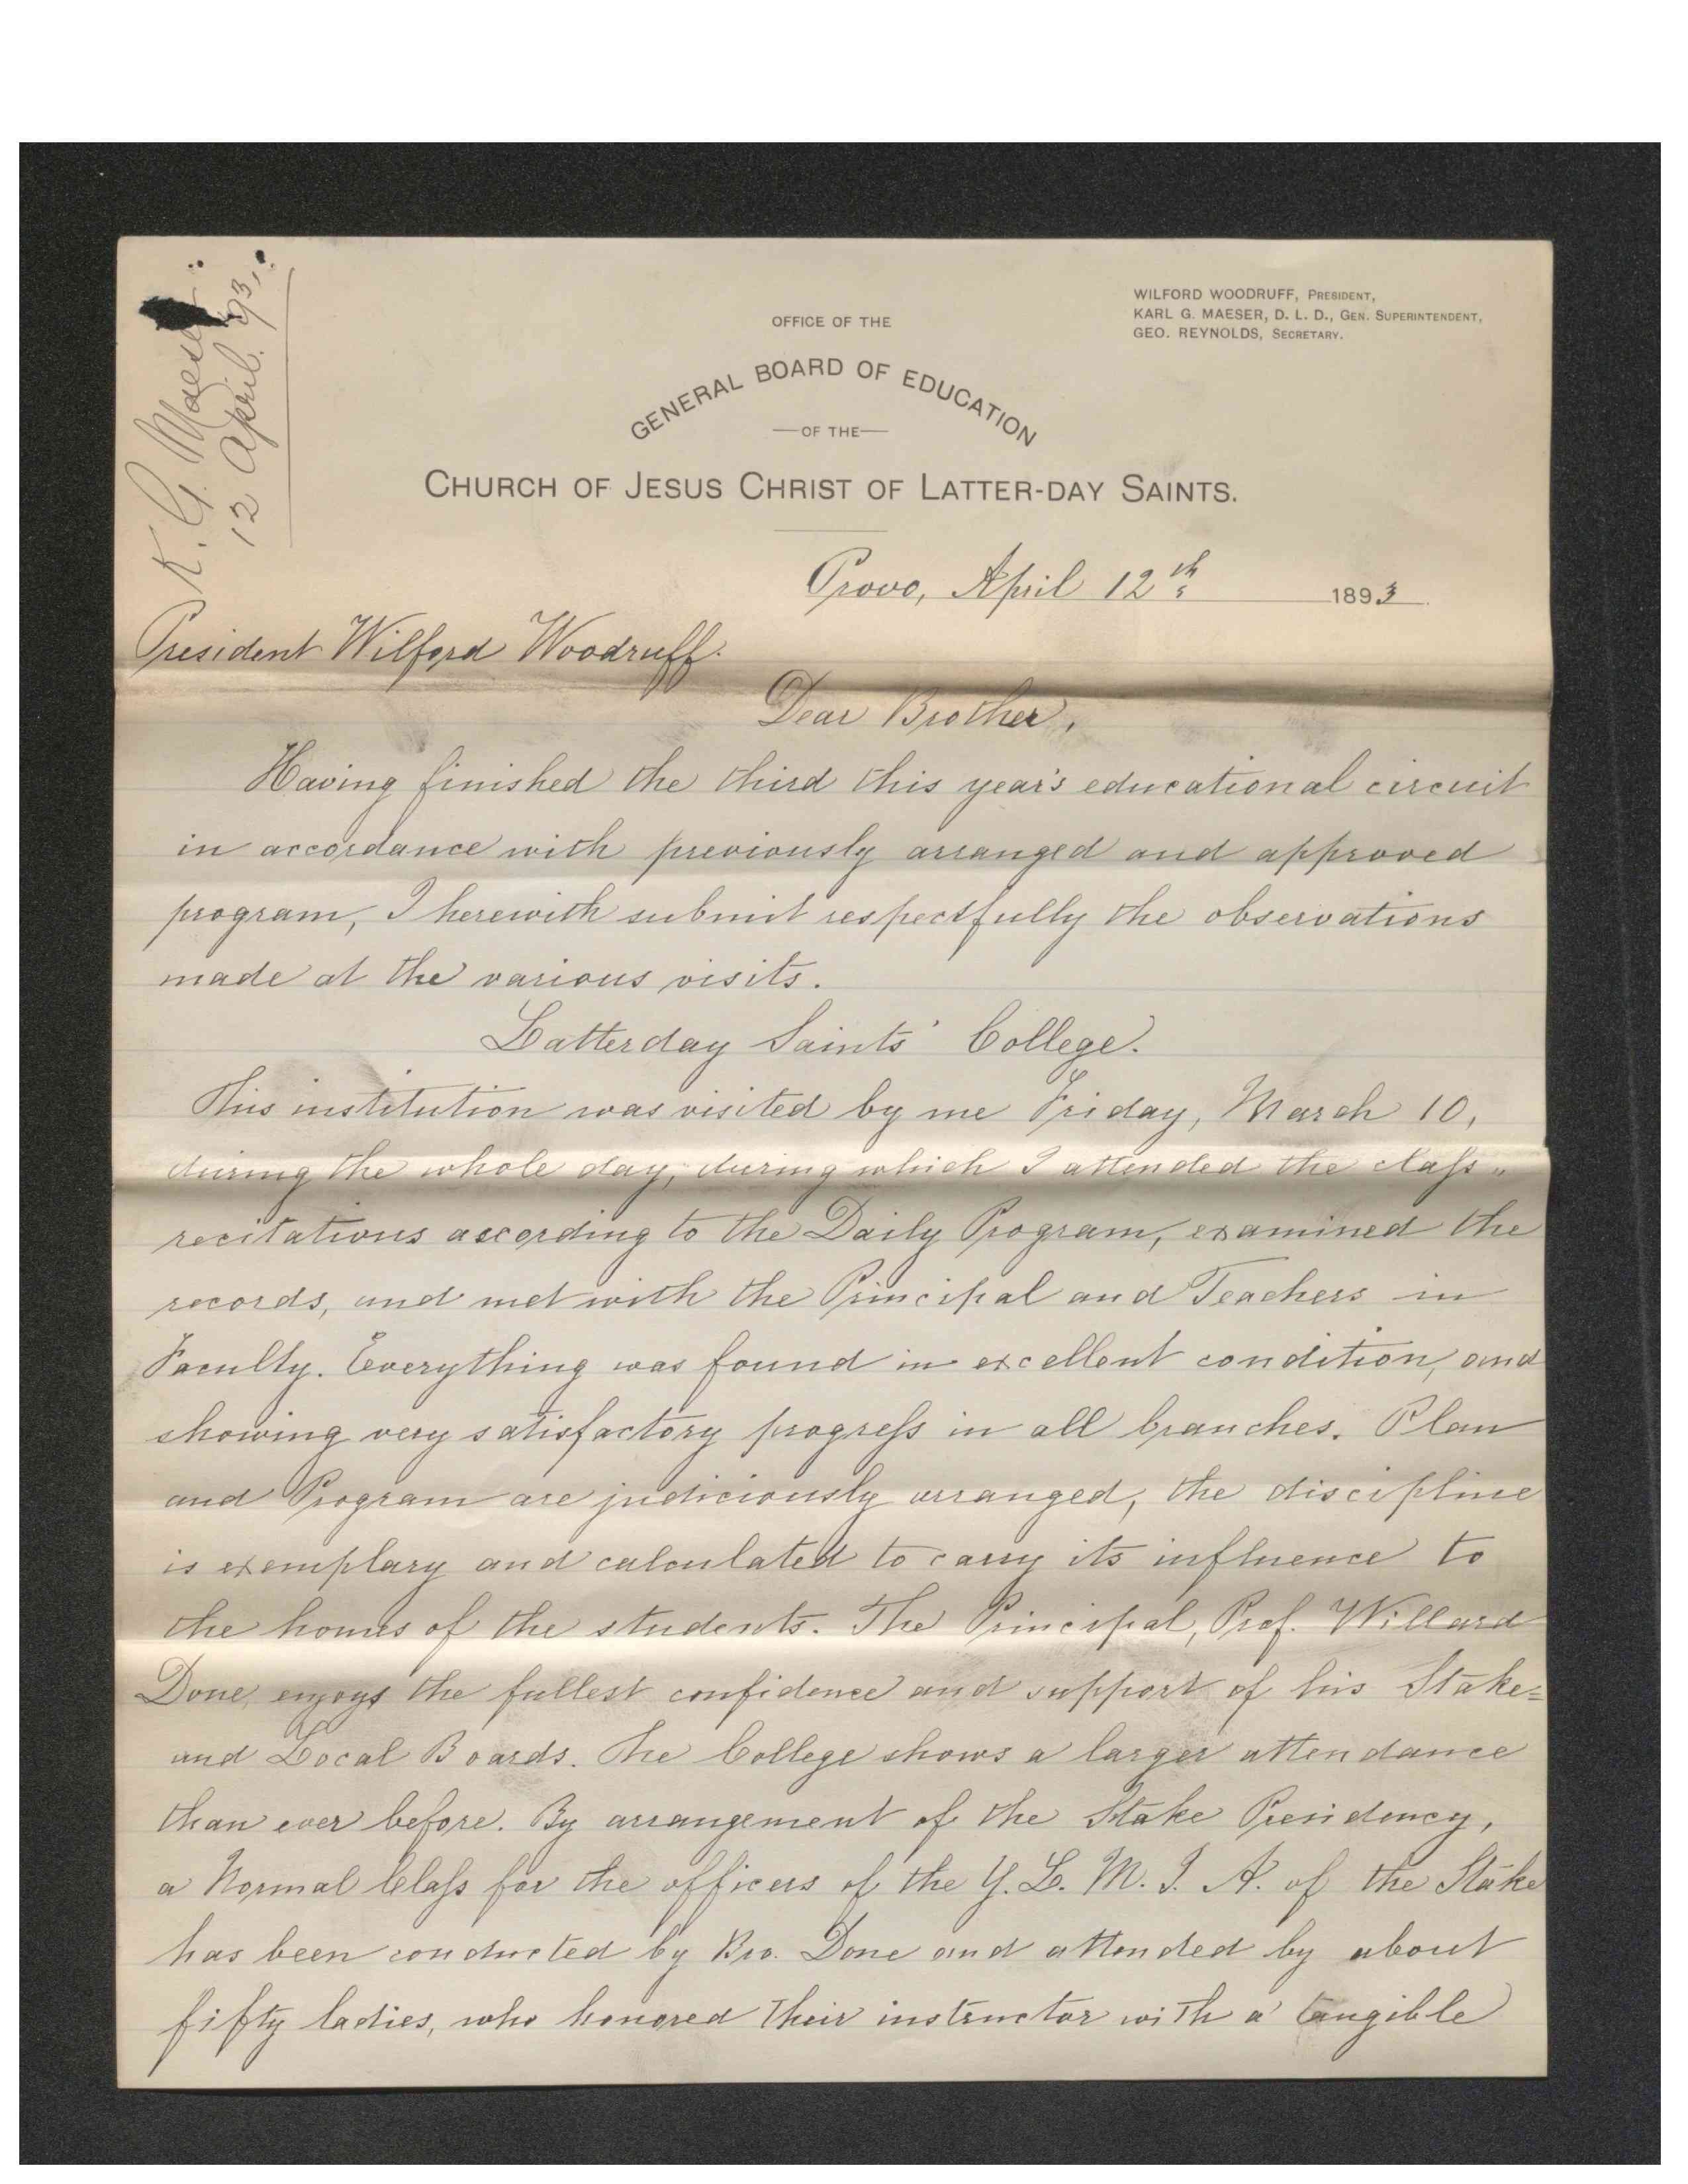 K. G. Maeser
12 April. 93,
WILFORD WOODRUFF, PRESIDENT,
KARL G. MAESER, D. L. D., GEN. SUPERINTENDENT,
GEO. REYNOLDS, SECRETARY.
OFFICE OF THE
GENERAL BOARD OF EDUCATION
—OF THE—
CHURCH OF JESUS CHRIST OF LATTER-DAY SAINTS.
Provo, April 12th 1893
President Wilford Woodruff.
Dear Brother,
Having finished the third this year's educational circuit
in accordance with previously arranged and approved
program, I herewith submit respectfully the observations
made at the various visits.
Latterday Saints' College.
This institution was visited by me Friday, March 10,
during the whole day, during which I attended the class-
recitations according to the Daily Program, examined the
records, and met with the Principal and Teachers in
Faculty. Everything was found in excellent condition, and
showing very satisfactory progress in all branches. Plan
and Program are judiciously arranged, the discipline
is exemplary and calculated to carry its influence to
the homes of the students. The Principal, Prof. Willard
Done, enjoys the fullest confidence and support of his Stake=
and Local Boards. The College shows a larger attendance
than ever before. By arrangement of the Stake Presidency,
a Normal Class for the officers of the Y. L. M. I. A. of the Stake
has been conducted by Bro. Done and attended by about
fifty ladies, who honored their instructor with a tangible